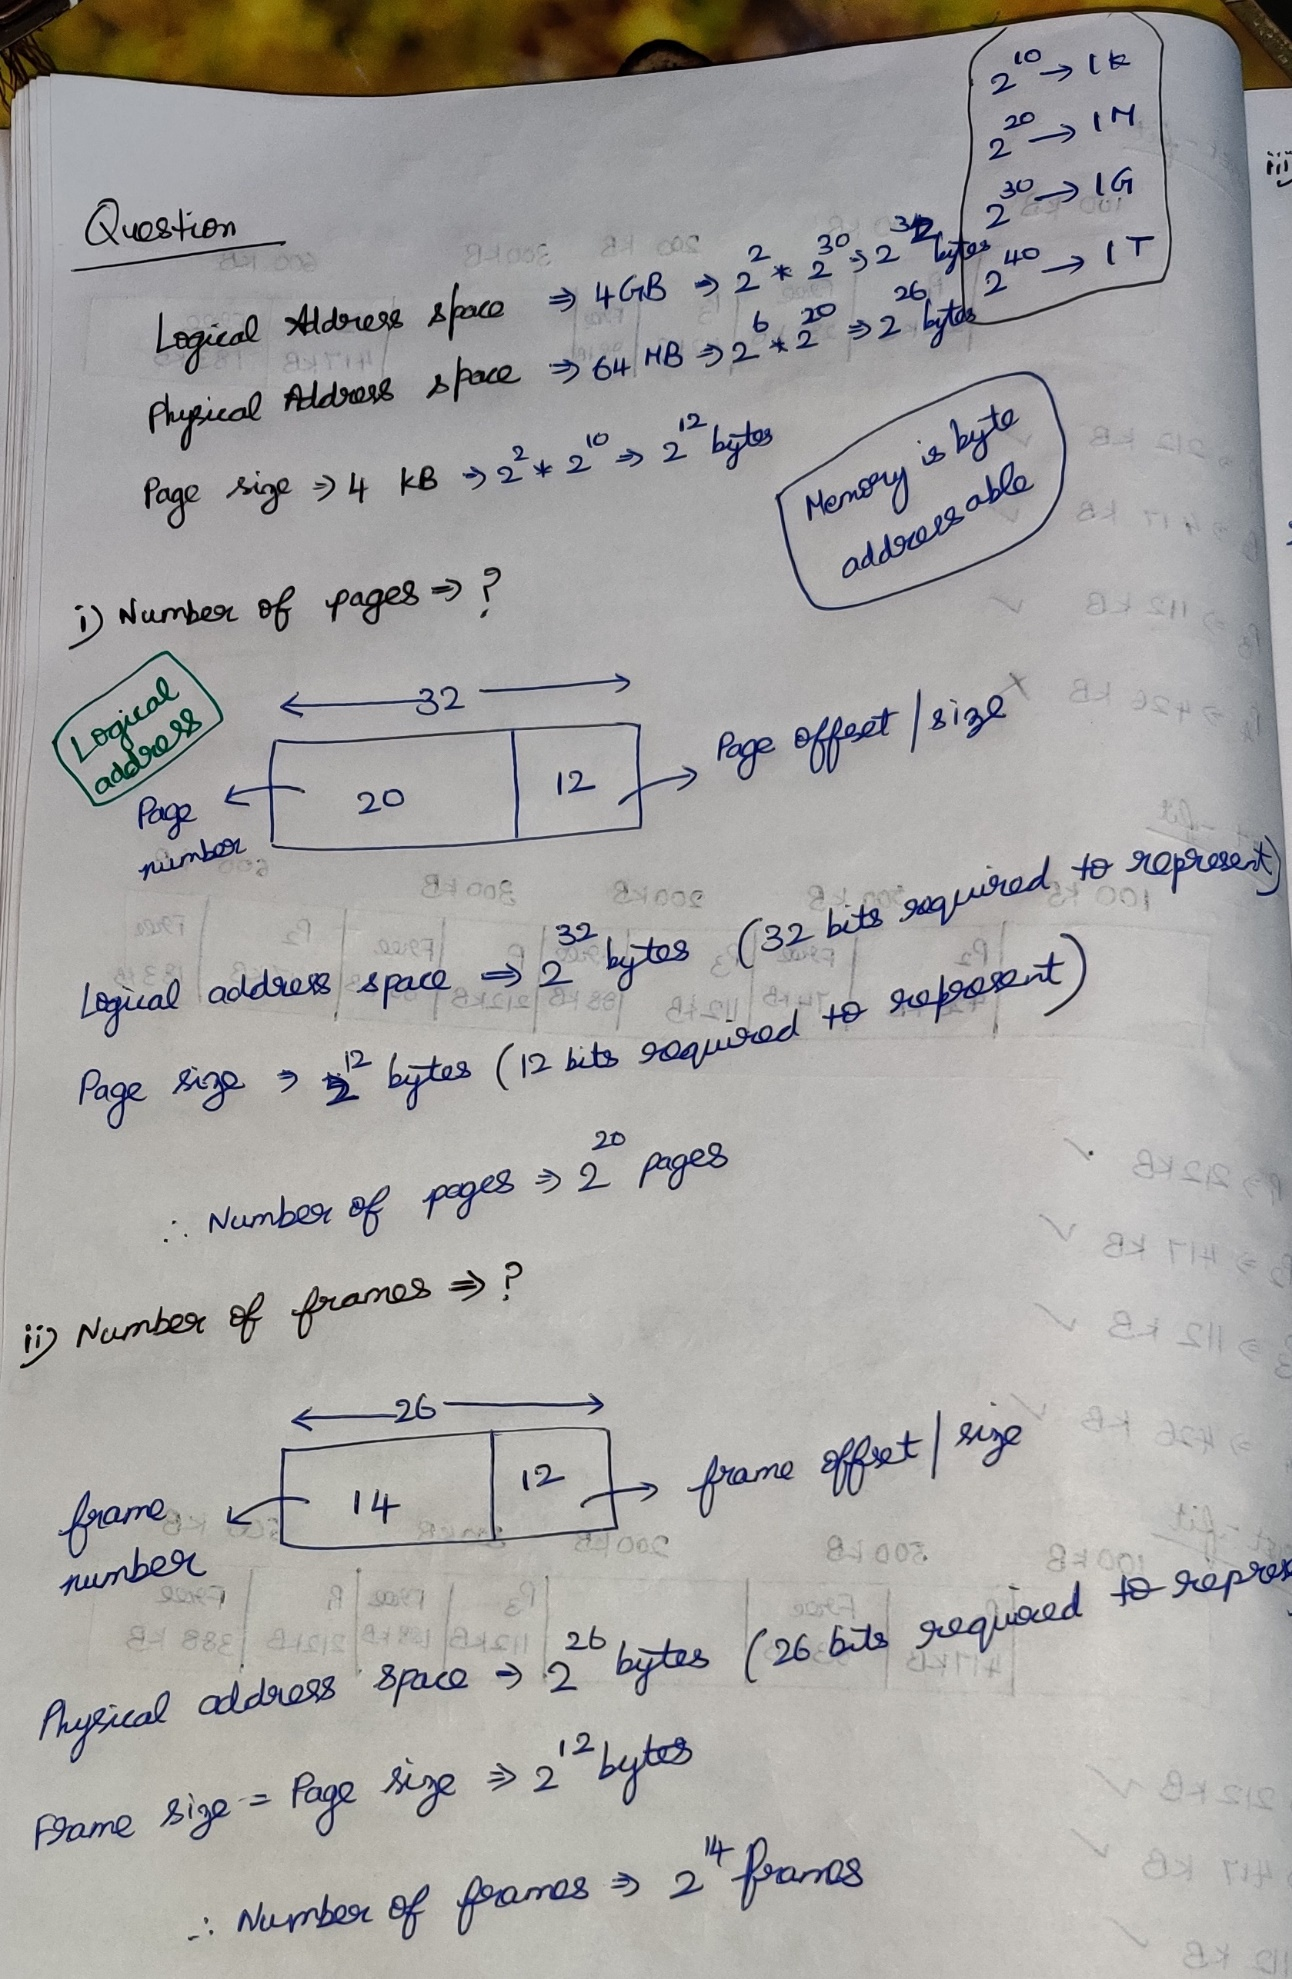 2^10 → 1K
2^20 → 1M
2^30 → 1G
2^40 → 1T
Question
Logical Address space ⇒ 4GB ⇒ 2^2 * 2^30 ⇒ 2^32 bytes
Physical Address space ⇒ 64 MB ⇒ 2^6 * 2^20 ⇒ 2^26 bytes
Page size ⇒ 4 kB ⇒ 2^2 * 2^10 ⇒ 2^12 bytes
Memory is byte
addressable
i) Number of pages ⇒ ?
Logical
address
32
Page
number
20
12
Page offset / size
Logical address space ⇒ 2^32 bytes (32 bits required to represent)
Page size ⇒ 2^12 bytes (12 bits required to represent)
∴ Number of pages ⇒ 2^20 pages
ii) Number of frames ⇒ ?
26
frame
number
14
12
frame offset / size
Physical address space ⇒ 2^26 bytes (26 bits required to repres
Frame size = Page size ⇒ 2^12 bytes
∴ Number of frames ⇒ 2^14 frames
iii)